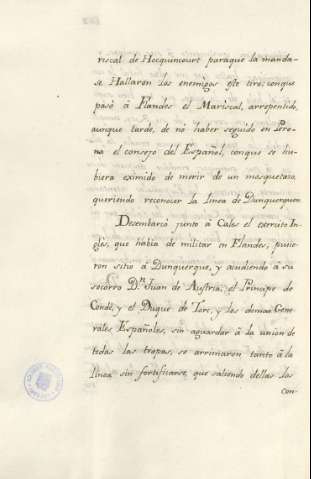 riscal de Hocquincourt paraque la manda-
se. Hallaron los enemigos este tiro, conque
pasó á Flandes el Mariscal, arrepentido,
aunque tarde, de no haber seguido en Pero-
na el consejo del Español, conque se hu-
biera eximido de morir de un mosquetazo,
queriendo reconocer la linea de Dunquerquen.
Desembarcó junto á Cales el exercito In-
glés, que habia de militar en Flandes, pusie-
ron sitio á Dunquerque, y acudiendo á su
socorro Dn. Juan de Austria, el Principe de
Condé, y el Duque de Iorc, y los demas Gene-
rales Españoles, sin aguardar á la union de
todas las tropas, se arrimaron tanto á la
linea sin fortificarse, que saliendo dellas los
con-